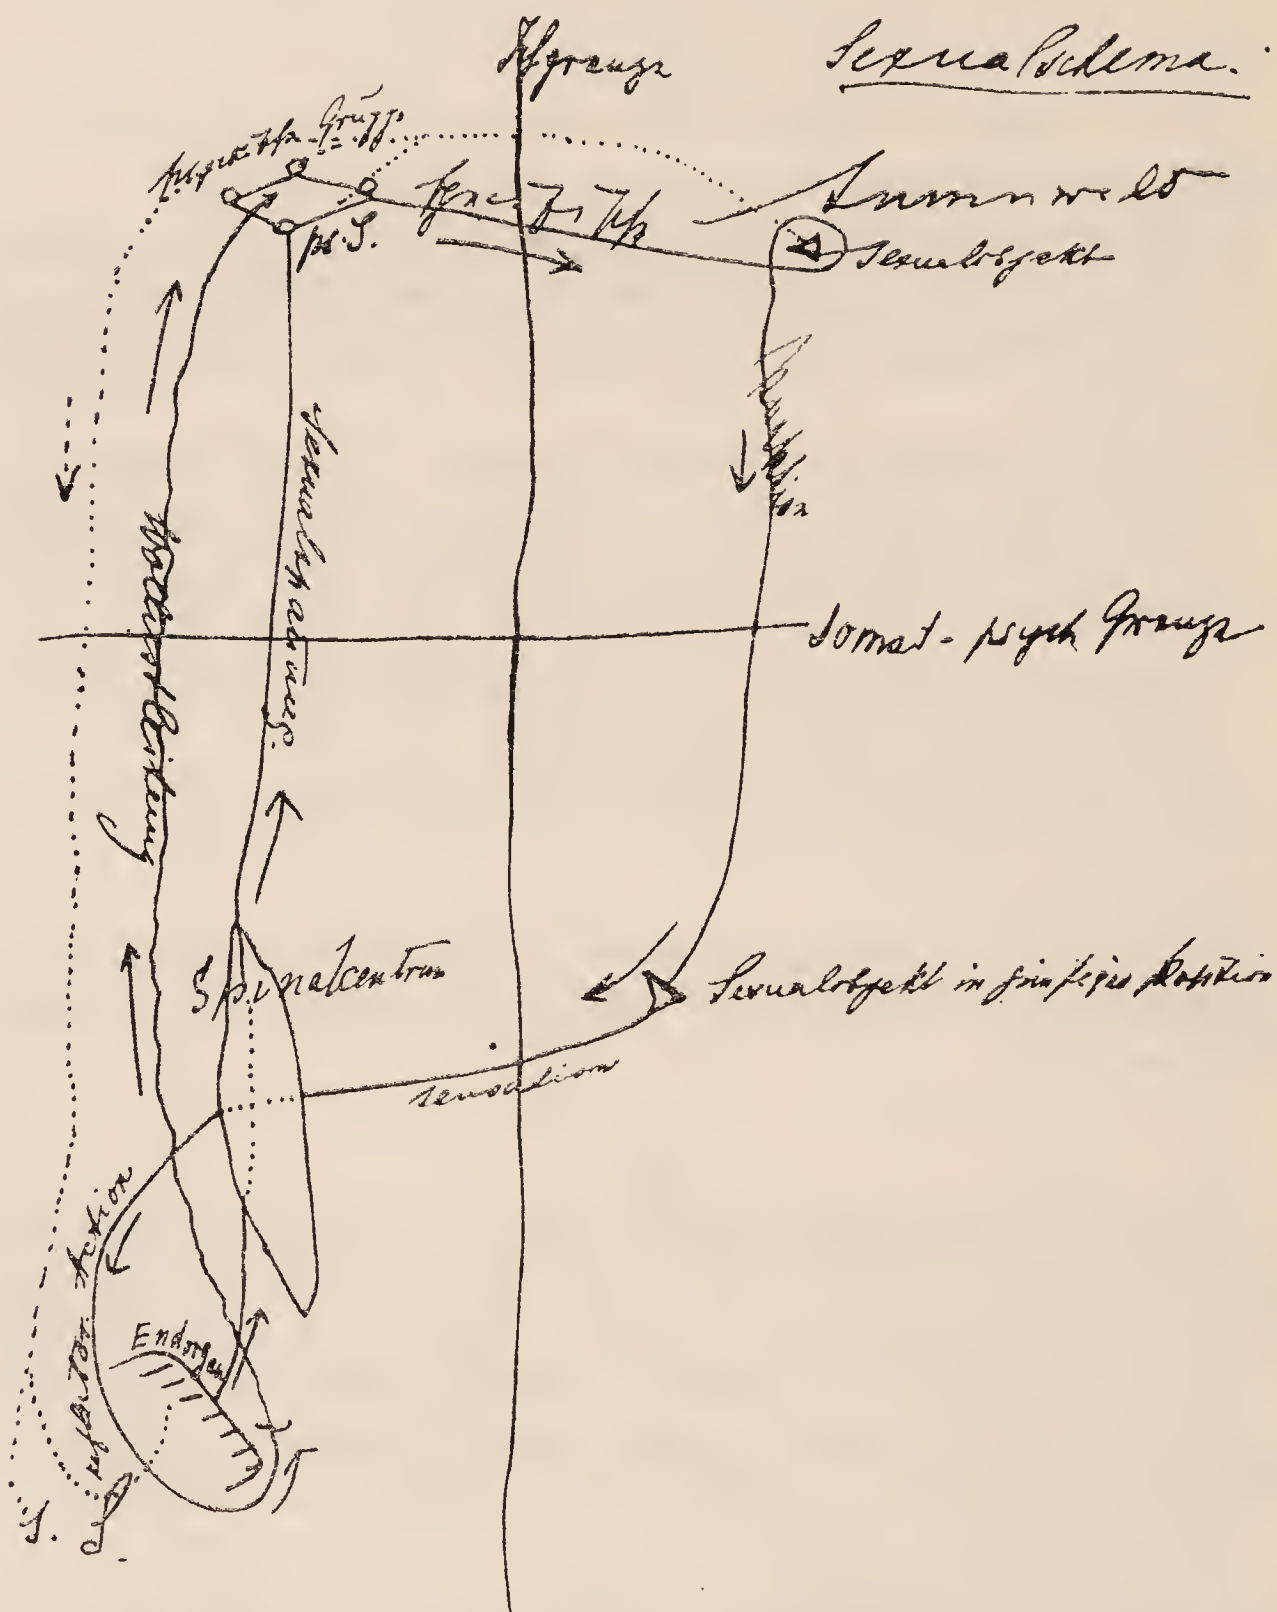 Ichgrenze
Sexualschema.
psych. Grupp.
ps. S.
Aussenwelt
Sexualobjekt
Wollustleitung
Sexualspannung.
Somat-psych Grenze
Spinalcentrum
Sexualobjekt in günstiger Position
sensation
reflector. Action
Endorgan
S.